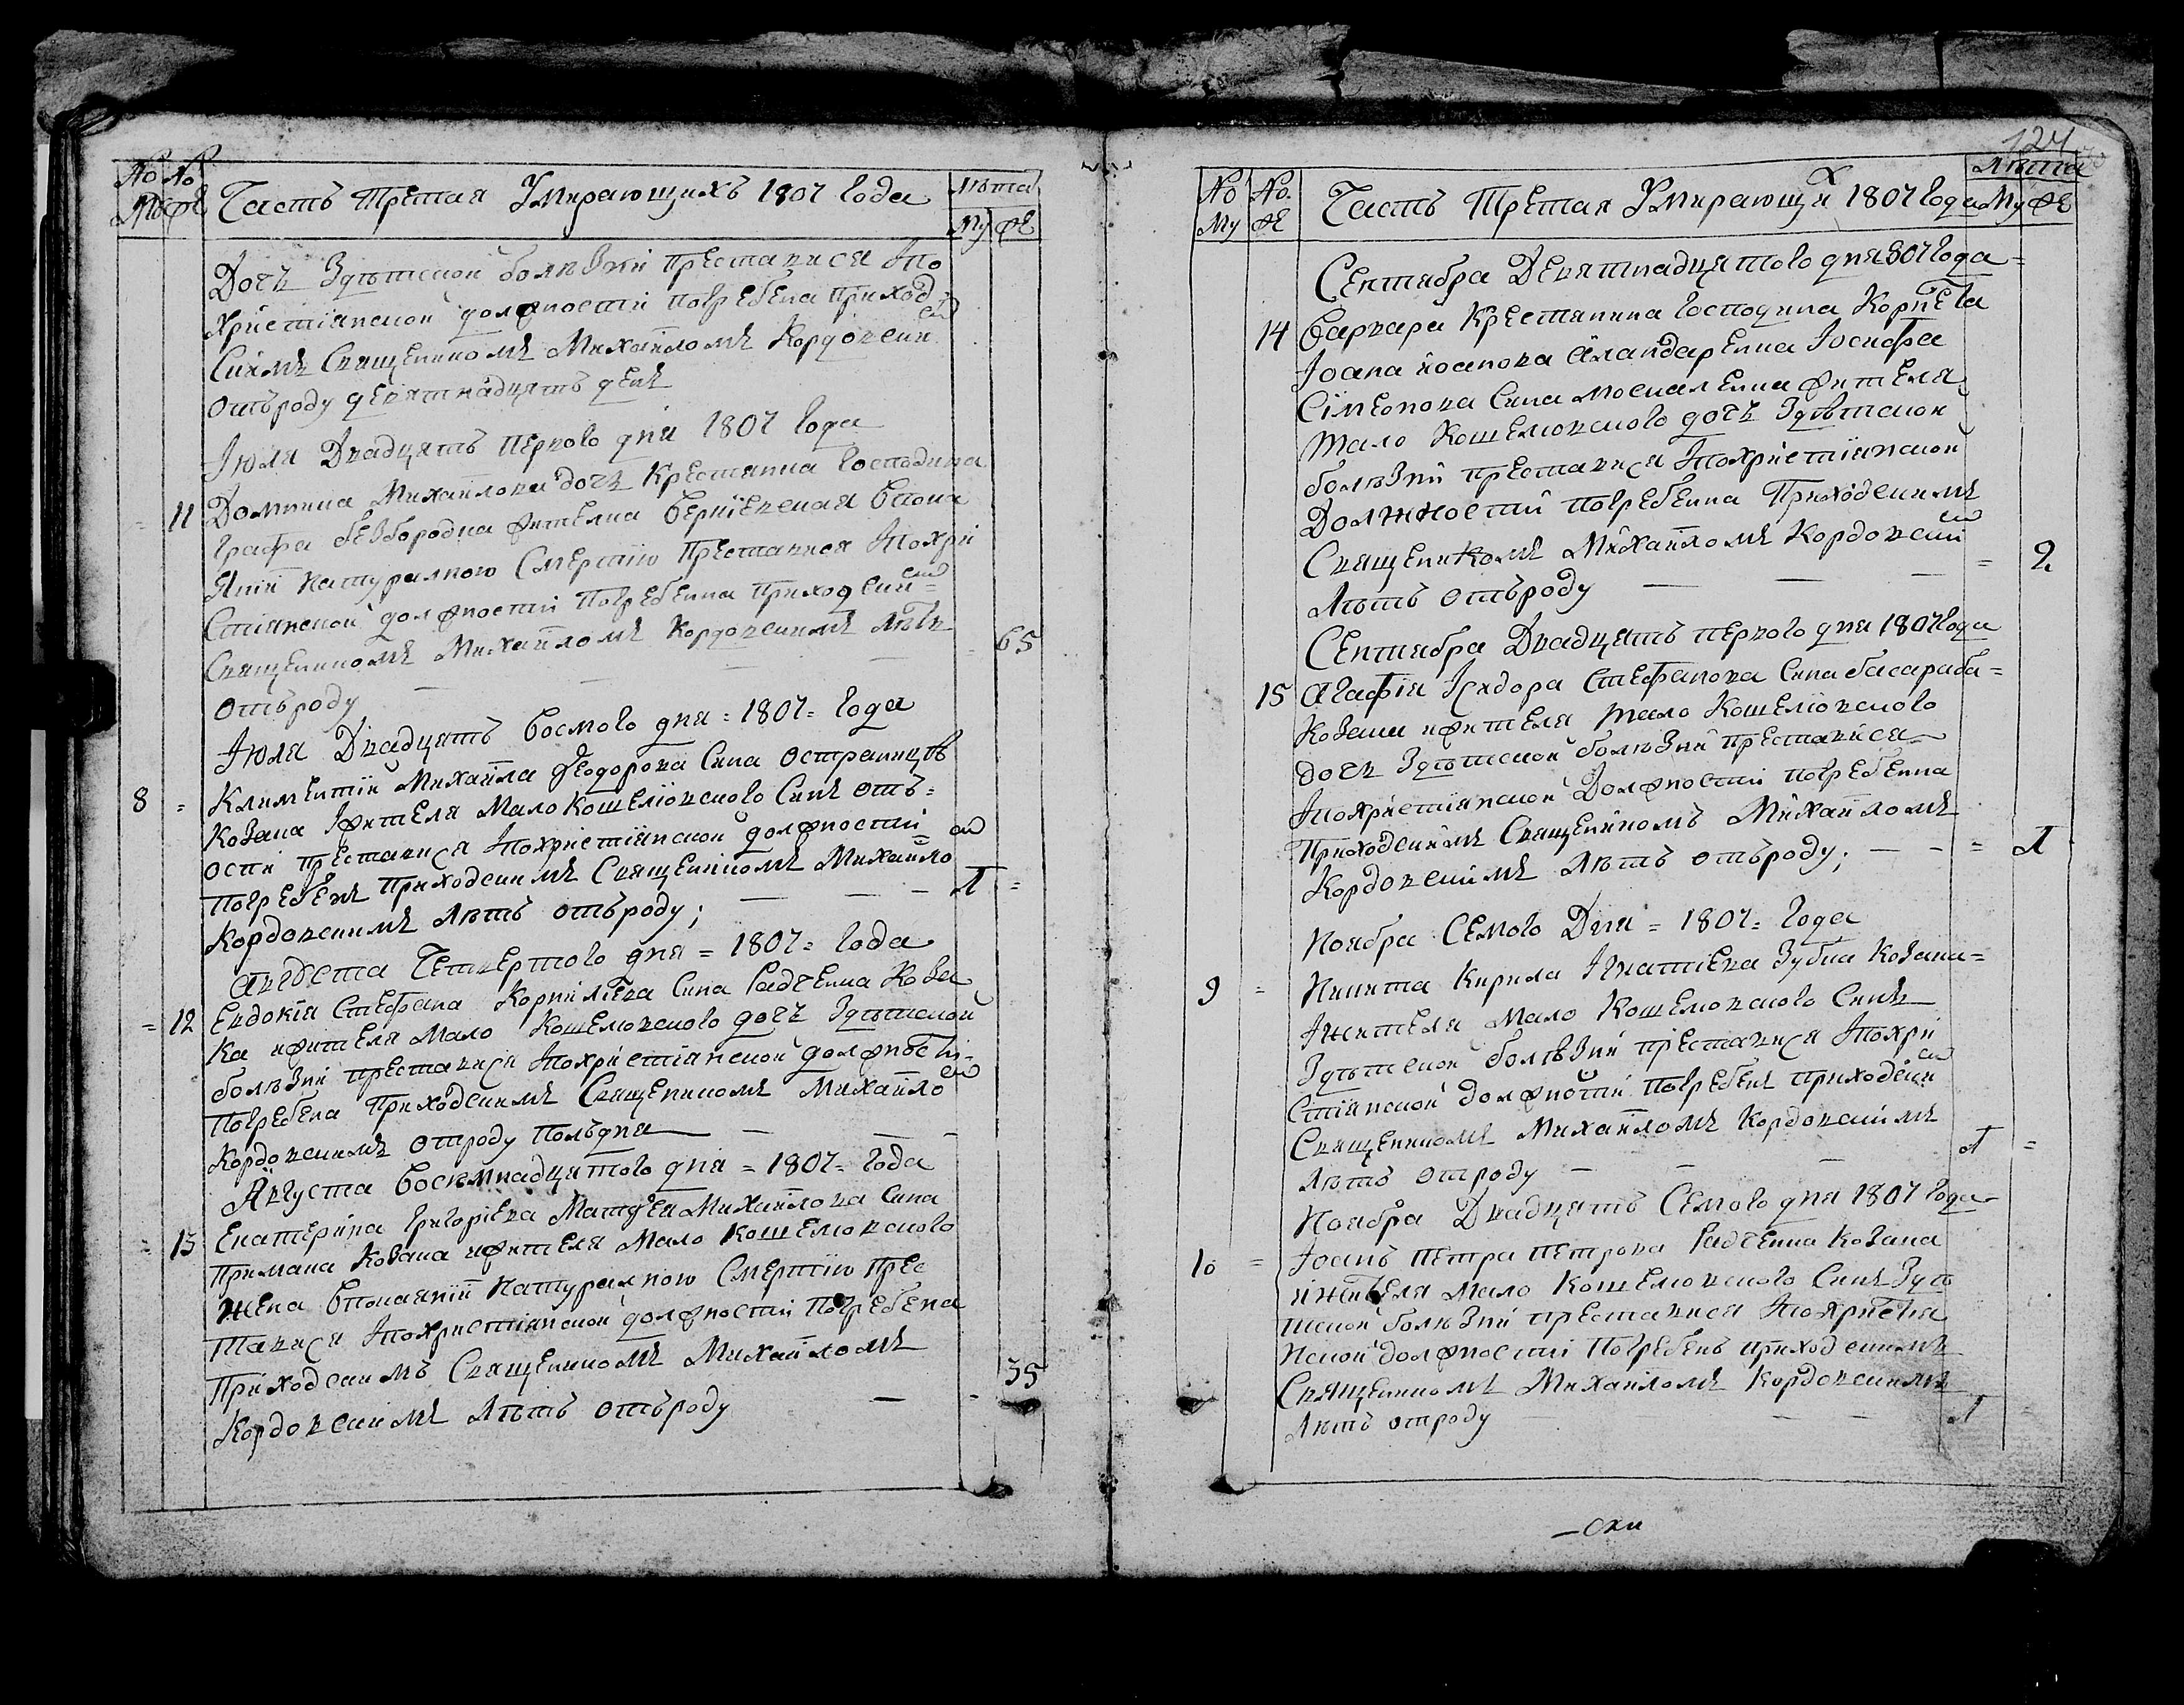 No No
Му фе
Часть Третая Умирающихъ 1807 Года
Лѣта
Му фе
Дочь Здѣтской болѣзни преставися Ипо
христіянской должности погребена приход
скимъ Священикомъ Михайломъ Кордовским
отъроду девятнадцять денъ
Июля Двадцять первого дня 1807 Года
= 11 Домникиа Михайлова дочь Крестянка Господина
Графа безбородка жителка Бернїевская вдова
натуралною Смертїю Преставися Ипохри
Стіянской должности Погребенна Приходским
Священикомъ Михайломъ Кордовскимъ Лѣтъ
отъроду — — — = 65
Июля Двадцять восмого дня = 1807 = Года
8 = Климентїй Михайла Феодорова Сина Остраницѣ
Козака Ижителя Мало Кошелїовского Синъ отъ=
оспи преставися Ипохристїянской должности
погребенъ Приходскимъ Священікомъ Михайло
Кордовскимъ Лѣтъ отъроду; — — — 1 =
Августа Четвертого дня = 1807 = Года
= 12 Евдокїя Стефана Корнилїева Сина Радченка Коза
ка ижителя Мало Кошелювского дочь Здѣтской
болѣзни преставися Ипохристїянской должности=
Погребена Приходскимъ Священикомъ Михайло
Кордовскимъ отроду Полъдня — — —
Августа восемнадцятого дня = 1807 = Года
= 13 Екатерина Григорїева Матфея Михайлова Сина
Примака Козака ижителя Мало Кошелювского
жена натуралною Смертїю Прес
тависи Ипохристїянской должности Погребена
Приходскимъ Священикомъ Михайломъ
Кордовскимъ Лѣтъ отъроду — - 35
124
No No.
Му фе
Часть Третая Умирающих 1807 Года
Лѣта
Му фе
Сентября Девятнадцятого дня 807 Года=
14 Варвара Крестянина Господина Корнета
Іоана Іоанова Скаландаренка Іосифа
Сімеонова Сина Москаленка жителя
Мало Кошелювского дочь Здѣтской
болѣзни преставися Ипохристїянской
Должности погребенна Приходскимъ
Священикомъ Михайломъ Кордовским
Лѣтъ отъроду — — — = 2
Сентября Двадцять первого дня 1807 Года
15 Агафїя Ісидора Стефанова Сина басараба=
Козака ижителя Мало Кошелїовского
дочь Здѣтской болѣзни преставися
Ипохристїянской Должности погребенна
Приходскимъ Священикомъ Михайломъ
Кордовскимъ Лѣтъ отъроду; — - = 1
Ноября Семого Дня = 1807 = Года
9 = Никита Кирила Ігнатїева Зубка Козака=
Ижителя Мало Кошелювского Синъ
Здѣтской болѣзни преставися Ипохри
Стїянской должности Погребенъ приходским
Священикомъ Михайломъ Кордовскимъ
Лѣтъ отроду — — — 1 =
Ноября Двадцять Семого дня 1807 года
10 = Іоанъ Петра Петрова Радченка Козака
ижителя Мало Кошелювского Синъ Здѣ
тской болѣзни преставися Ипохристия
нской должности Погребенъ приходскимъ
Священикомъ Михайломъ Кордовскимъ
Лѣтъ отроду — — — 1